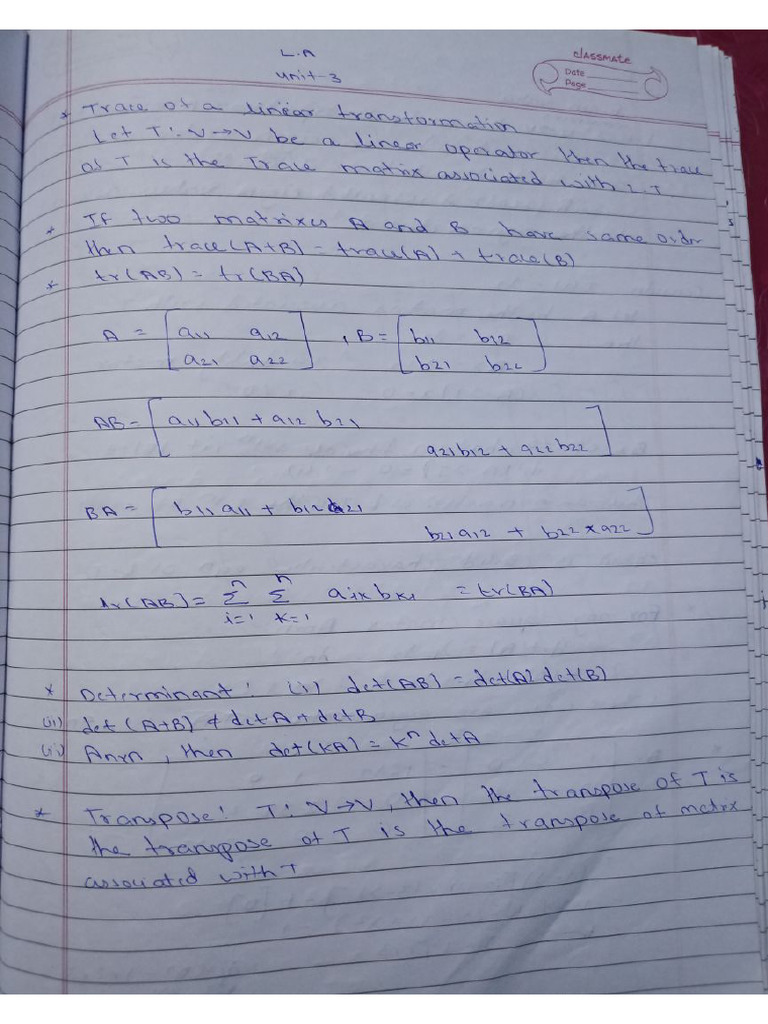 L.A
classmate
Unit-3
Date
Page
* Trace of a linear transformation
Let T: V→V be a linear operator then the trace
of T is the Trace matrix associated with L.T
* If two matrixes A and B have same order
then trace(A+B) = trace(A) + trace(B)
* tr(AB) = tr(BA)
A = [a11 a12
a21 a22] , B = [b11 b12
b21 b22]
AB = [a11b11 + a12b21
a21b12 + a22b22]
BA = [b11a11 + b12a21
b21a12 + b22×a22]
tr(AB) = n∑i=1 n∑k=1 aik bki = tr(BA)
* Determinant: (i) det(AB) = det(A) det(B)
(ii) det (A+B) ≠ det A + det B
(iii) Anxn, then det(KA) = K^n det A
* Transpose: T: V→V, then the transpose of T is
the transpose of T is the transpose of matrix
associated with T